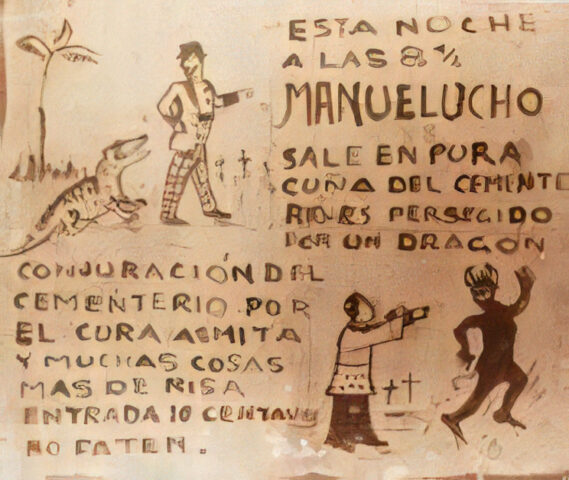 ESTA NOCHE
A LAS 8½
MANUELUCHO
SALE EN PURA
CUÑA DEL CEMENTE
PERSEGIDO
UN DRAGÓN
CONJURACIÓN DEL
CEMENTERIO POR
EL CURA ASMITA
Y MUCHAS COSAS
MAS DE RISA
ENTRADA 10 CENTAVO
NO FATEN.